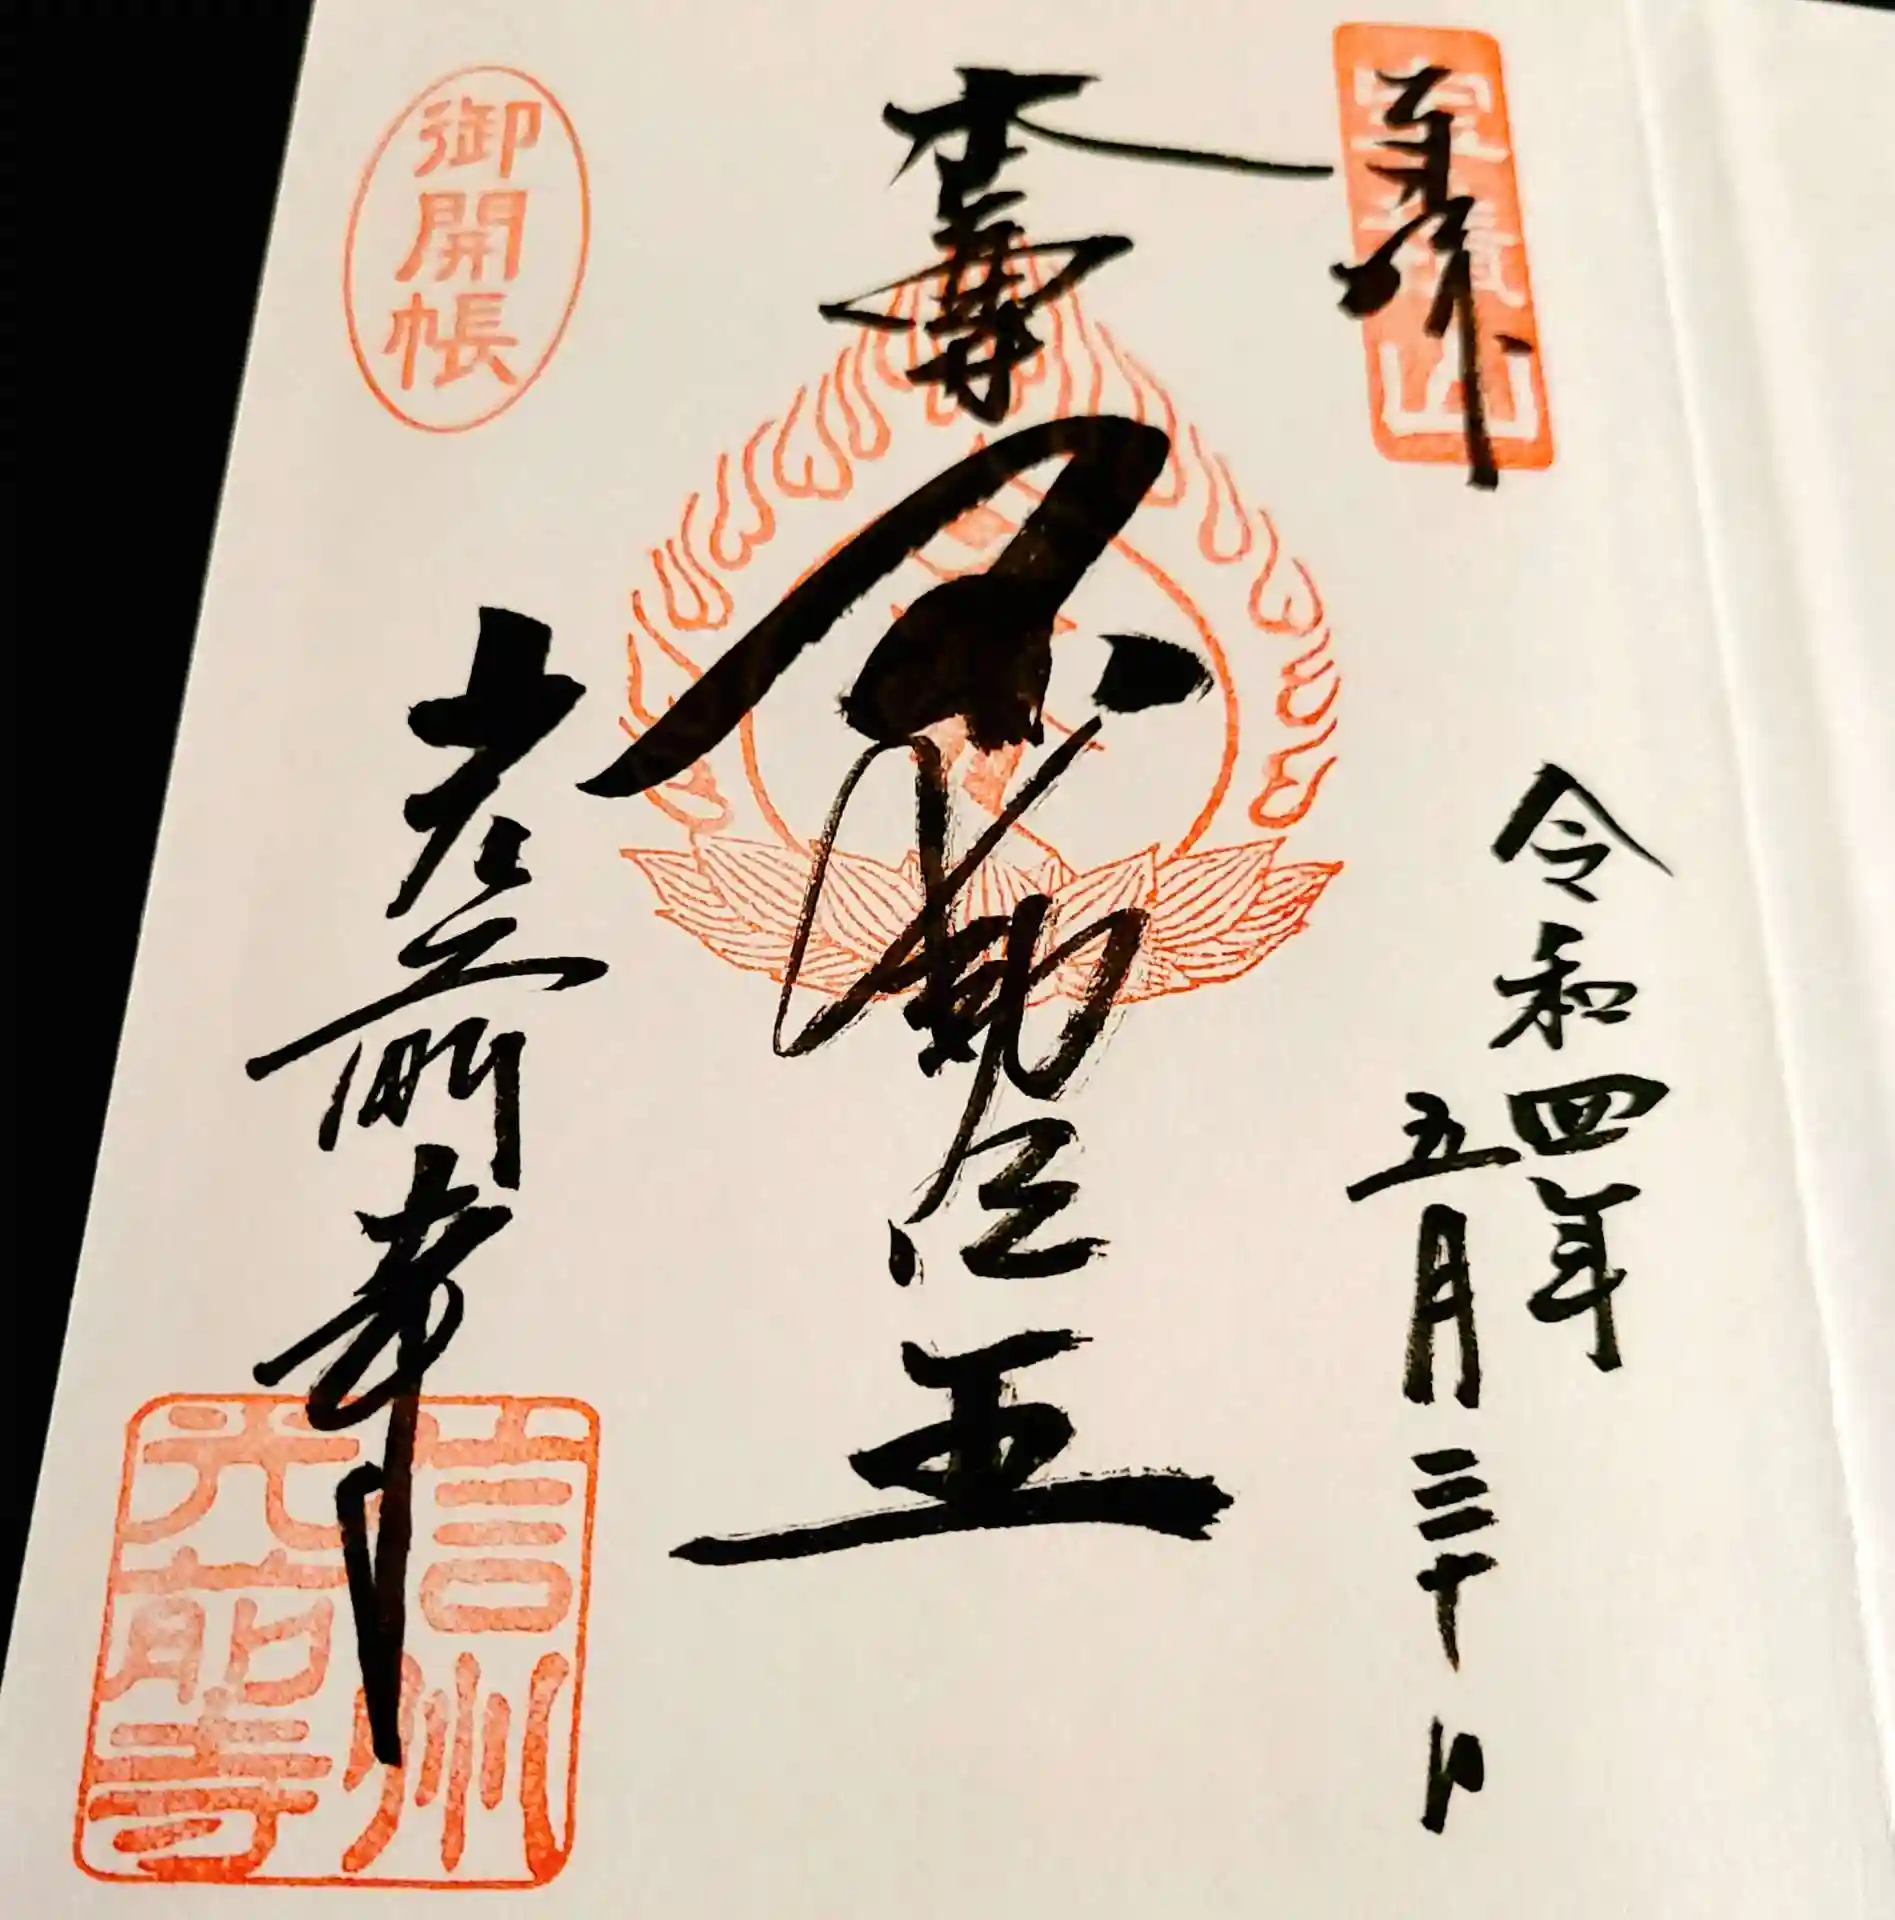 奉拝
宝積山
令和四年
五月三十日
本尊
不動明王
御開帳
光前寺
信州
光前寺